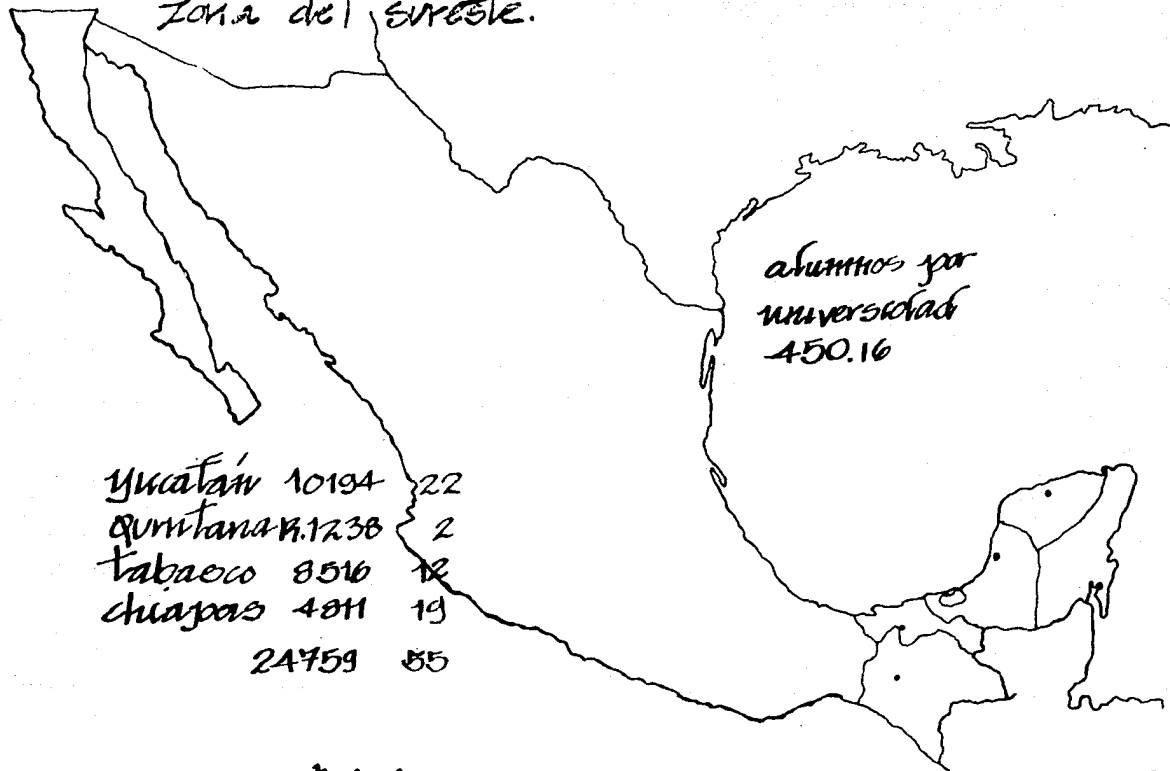 Zona del sureste.
alumnos por
universidad
450.16
Yucatán 10194 22
Quintana R. 1238 2
Tabasco 8516 12
chiapas 4811 19
24759 55